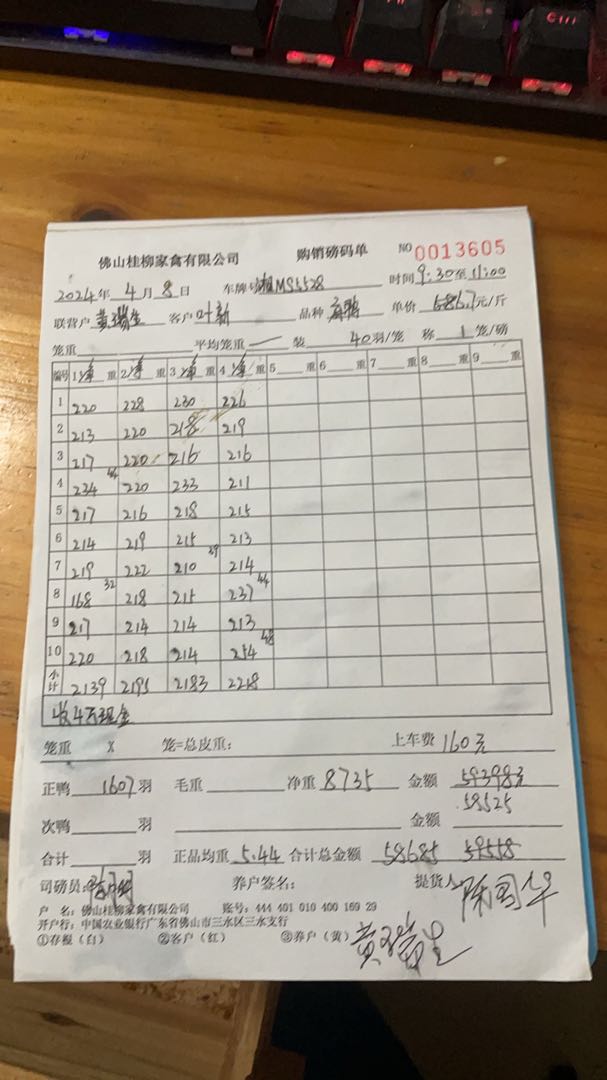 佛山桂柳家禽有限公司 购销磅码单 NO 0013605
2024年 4 月 8 日 车牌号 湘MS5528 时间 9:30至11:00
联营户 黄瑞生 客户 叶新 品种 单价 元/斤
笼重: 平均笼重 一 装 40 羽/笼 称 1 笼/磅
编号 1 净 重 2 净 重 3 净 重 4 净 重 5 重 6 重 7 重 8 重 9 重
1 220 228 230 226
2 213 220 218 219
3 217 220 216 216
4 234 44 220 233 211
5 217 216 218 215
6 214 219 215 213
7 219 222 210 39 214
8 168 32 218 215 237 44
9 217 214 214 213
10 220 218 214 254 48
小计 2139 2195 2183 2218
收4万现金
笼重 X 笼=总皮重: 上车费 160元
正鸭 1607 羽 毛重 净重 8735 金额 59398元
58525
次鸭 羽 金额
合计 羽 正品均重 5.44 合计总金额 58685 59558
司磅员: 养户签名: 提货人 陈国华
户 名: 佛山桂柳家禽有限公司 账号: 444 401 010 400 169 29
开户行: 中国农业银行广东省佛山市三水区三水支行
①存根(白) ②客户(红) ③养户(黄) 黄瑞生